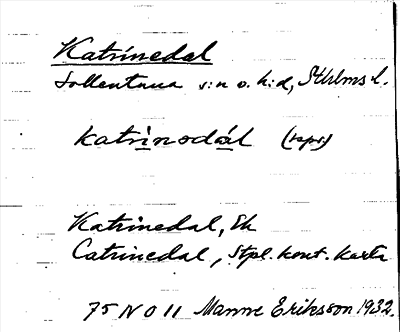 Katrinedal
Sollentuna s:n o. h:d, Sthlms l.
katrinodál
Katrinedal, Ek
Catrinedal, Stpl. konc. karta
75 NO 11 Manne Eriksson 1932.